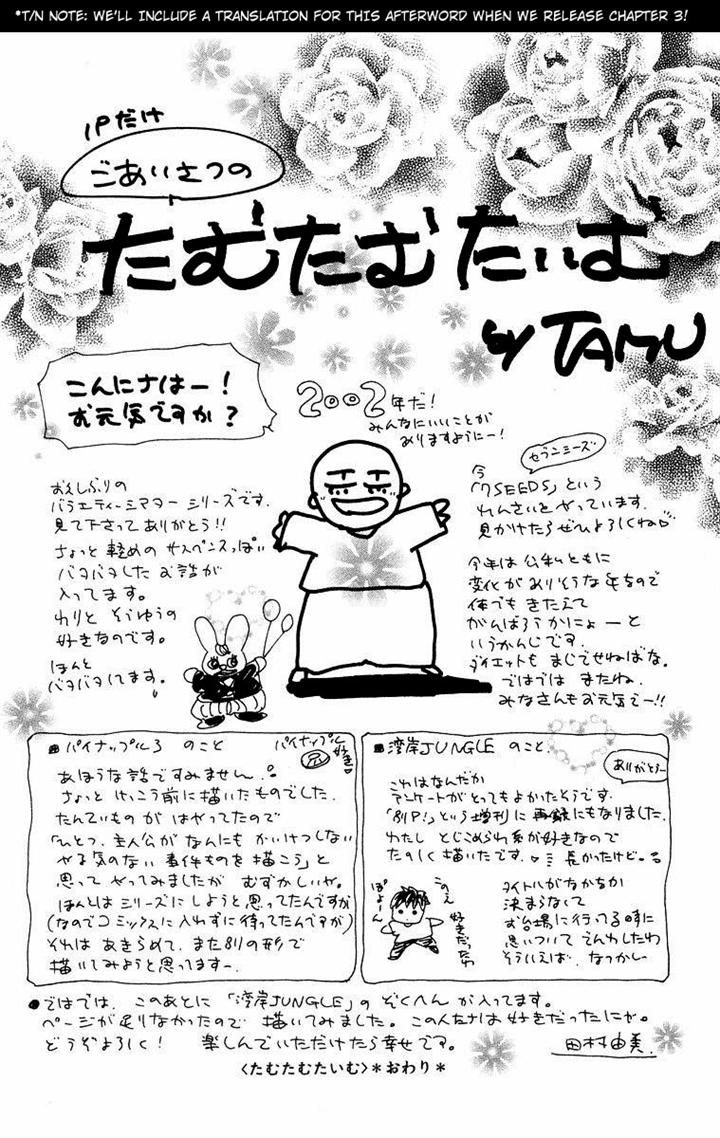 *T/N NOTE: WE'LL INCLUDE A TRANSLATION FOR THIS AFTERWORD WHEN WE RELEASE CHAPTER 3!
1Pだけ
ごあいさつの
たむたむたいむ
by TAMU
こんにちはー!
お元気ですか?
2002年だ!
みんなにいいことが
ありますようにー!
おひさしぶりの
バラエティーシアターシリーズです。
見て下さってありがとう!!
ちょっと軽めのサスペンスっぽい
バタバタしたお話が
入ってます。
わりとそうゆうの
好きなのです。
ほんと
バタバタしてます。
セブンシーズ
今
「7SEEDS」という
れんさいをやっています。
見かけたらぜひよろしくね♡
今年は公私ともに
変化がありそうな年なので
体でもきたえて
がんばろうかにょーと
いうかんじです。
ダイエットもまじでせねばな。
ではではまたね。
みなさんもお元気でー!!
パイナップル3 のこと
パイナップル
好き♡
あほうな話ですみません。
ちょっとけっこう前に描いたものでした。
たんていものがはやってたので
「ひとつ、主人公がなんにもかいけつしない
やる気のない事件ものを描こう」と
思ってやってみましたがむずかしいや。
ほんとはシリーズにしようと思ってたんですが
(なのでコミックスに入れずに待ってたんですが)
それはあきらめて、また別の形で
描いてみようと思ってますー。
湾岸JUNGLE のこと
ありがとうー
これはなんだか
アンケートがとってもよかったそうです。
「別P!」という増刊に再録にもなりました。
わたしとじこめられ系が好きなので
たのしく描いたです。♡ 長かったけど。
タイトルがなかなか
決まらなくて
お台場に行ってる時に
思いついてでんわしたわ
そういえば。なつかしー
このえ
好きだったわ
ぽよーん
●ではでは、このあとに「湾岸JUNGLE」のぞくへんが入ってます。
ページが足りなかったので描いてみました。この人たちは好きだったにゃ。
どうぞよろしく! 楽しんでいただけたら幸せです。
田村由美
〈たむたむたいむ〉*おわり*